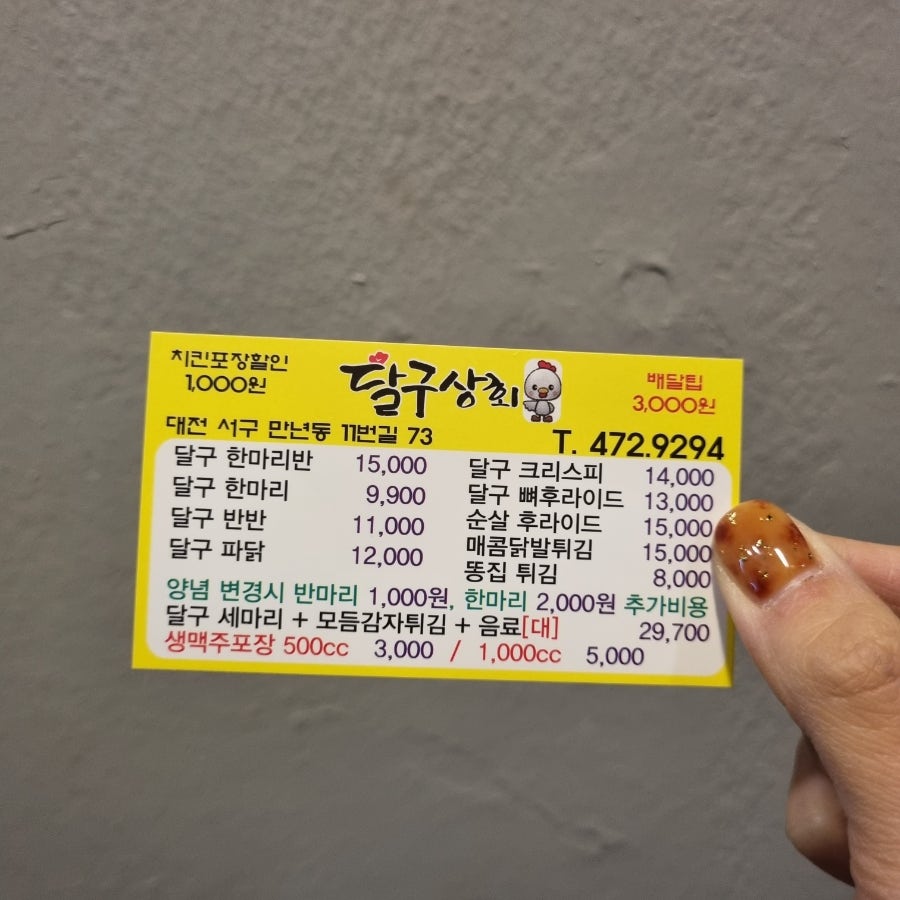 치킨포장할인
1,000원
달구상회
배달팁
3,000원
대전 서구 만년동 11번길 73
T. 472.9294
달구 한마리반 15,000
달구 한마리 9,900
달구 반반 11,000
달구 파닭 12,000
달구 크리스피 14,000
달구 뼈후라이드 13,000
순살 후라이드 15,000
매콤닭발튀김 15,000
똥집 튀김 8,000
양념 변경시 반마리 1,000원, 한마리 2,000원 추가비용
달구 세마리 + 모듬감자튀김 + 음료[대] 29,700
생맥주포장 500cc 3,000 / 1,000cc 5,000